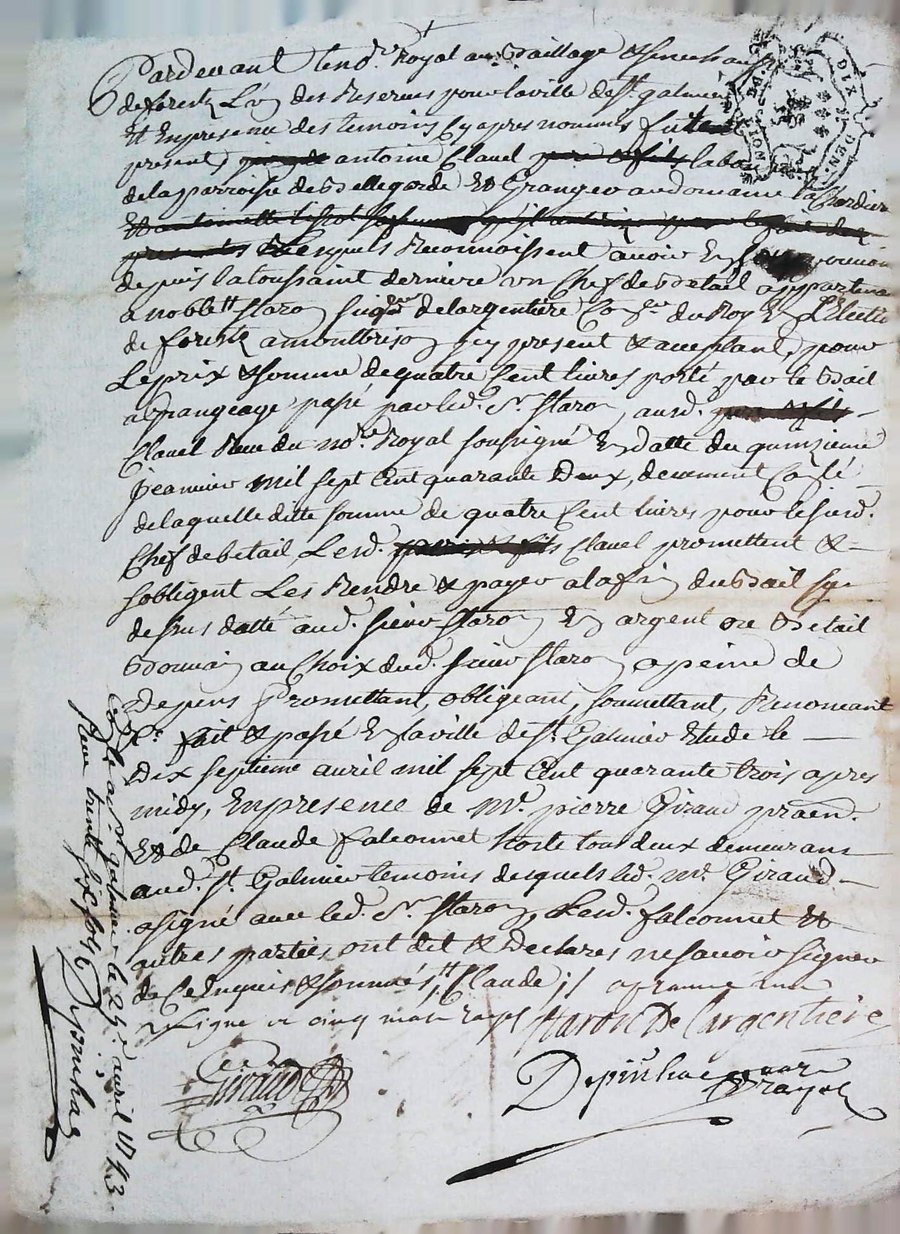 Pardevant le no.re Royal au Baillage & senechau
de forestz L'un des Reserves pour la ville de st. galmier
Et En presence des temoins Cy apres nommés fut
present, antoine Clavel labou
de la parroisse de Bellegarde Et Granger au domaine
Lesquels Reconnoissent avoir En
depuis la toussaint derniere un Chef de Betail appartena
a noble staron seigr. de largentiere Coner. du Roy En L'Electio
de forestz a montbrison icy present & acceptant, pour
Le prix & somme de quatre Cent livres porté par le Bail
a Grangeage passé par led. Sr. staron, aud.
Clavel Reçu du no.re Royal soussigné En datte du quinzieme
Jeanvier mil sept Cent quarante Deux, deuement Conllé
de laquelle ditte somme de quatre Cent livres pour le sud.
Chef de betail Lesd. Clavel promettent &
sobligent Les Rendre & payer a la fin du Bail sy
dessus datté aud. sieur staron En argent ou Betail
au Choix dud. sieur staron a peine de
Depens Promettant, obligeant, soumettant, Renonceant
&c. fait & passé En la ville de st. Galmier Etude le
Dix septieme avril mil sept Cent quarante trois apres
midy, En presence de Mr. pierre Giraud pratien.
Et de Claude falconnet hoste tous deux demeurans
aud. st. Galmier temoins desquels led. Mr. Giraud
a signé avec led. Sr. staron, Lesd. falconnet Et
autres parties ont dit & Declares ne savoir signer
de Ce Enquis & sommés, Claude; approuvé une
Ligne et cinq mots rayés Staron De Largentiere
Giraud
Depiuhac
no.re Royal
Conllé a st. galmier le 25e. avril 1743
Reçu trente six sols
DIX DEN.
LION